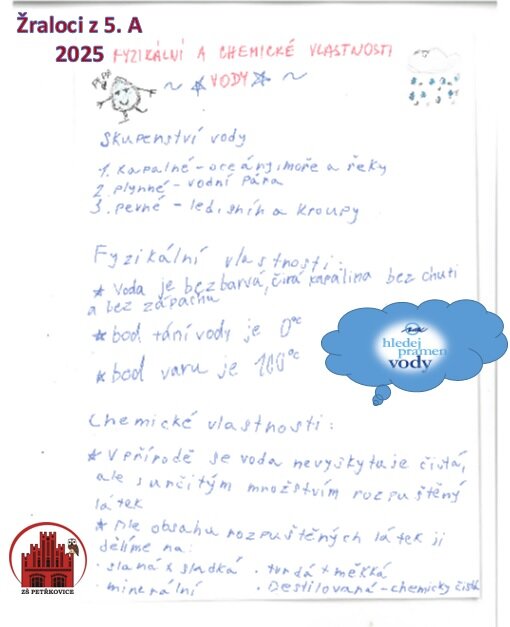 Žraloci z 5. A
2025
FYZIKÁLNÍ A CHEMICKÉ VLASTNOSTI
~ VODY ~
Skupenství vody
1. Kapalné - oceány, moře a řeky
2. plynné - vodní pára
3. pevné - led, sníh a kroupy
Fyzikální vlastnosti:
* Voda je bezbarvá, čirá kapalina bez chuti
a bez zápachu
* bod tání vody je 0°C
* bod varu je 100°C
hledej
pramen
vody
Chemické vlastnosti:
* V přírodě se voda nevyskytuje čistá,
ale s určitým množstvím rozpuštěný
látek
* Dle obsahu rozpuštěných látek ji
dělíme na:
· slaná x sladká · tvrdá + měkká
· minerální · Destilovaná - chemicky čistá
ZŠ PETŘKOVICE